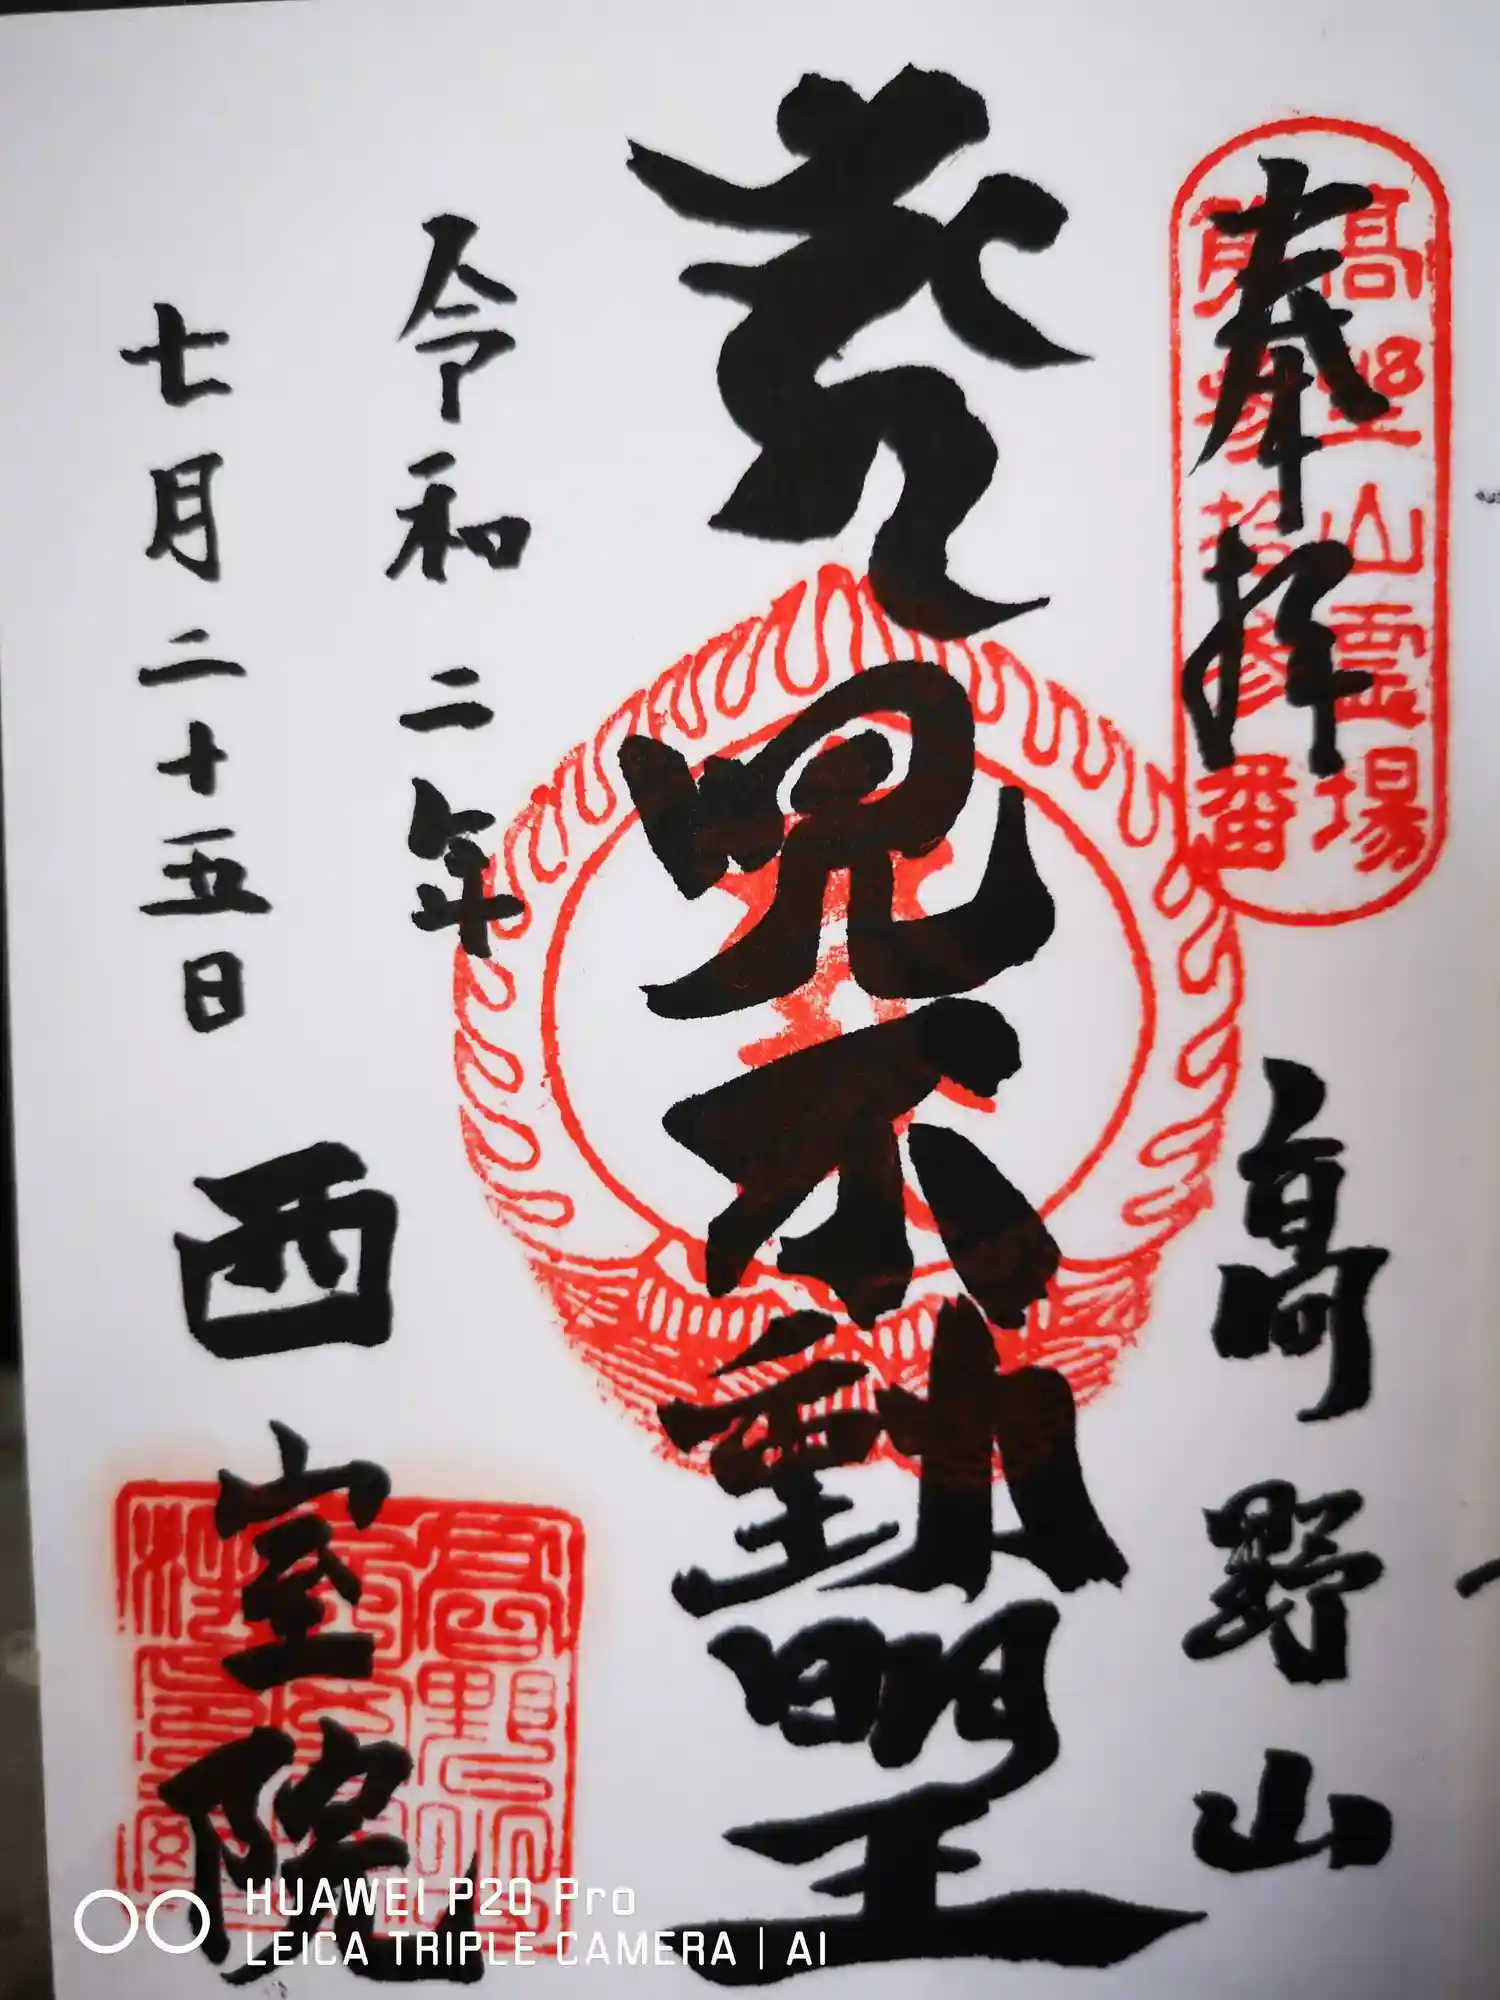 奉拝
高野山霊場
参拾参番
高野山
咒不動明王
令和二年
七月二十五日
西室院
HUAWEI P20 Pro
LEICA TRIPLE CAMERA | AI